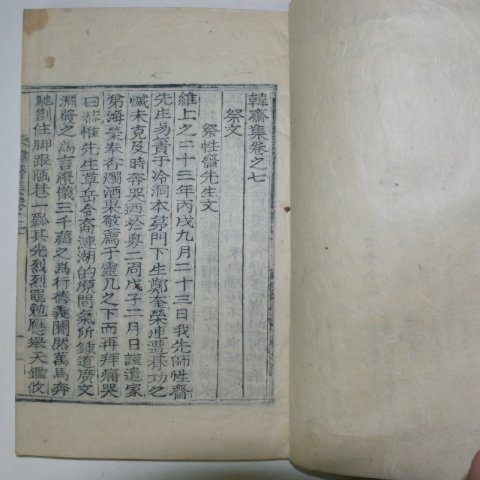 韓齋集卷之七
祭文
祭性齋先生文
維上之二十三年丙戌九月二十三日我先師性齋
先生易簀于冷洞本第門下生鄭奎榮連遭朞功之
慽未克及時奔哭西於粤二周戊子二月日謹遣家
第海榮奉香燭酒束敬薦于靈几之下而再拜痛哭
曰恭惟先生草岳令裔漣湖的源間氣所鍾道廣文
淵發之爲言禮儀三千蘊之爲行德義闇然萬馬奔
馳劄住脚跟陋巷一瓢其光烈烈黽勉應